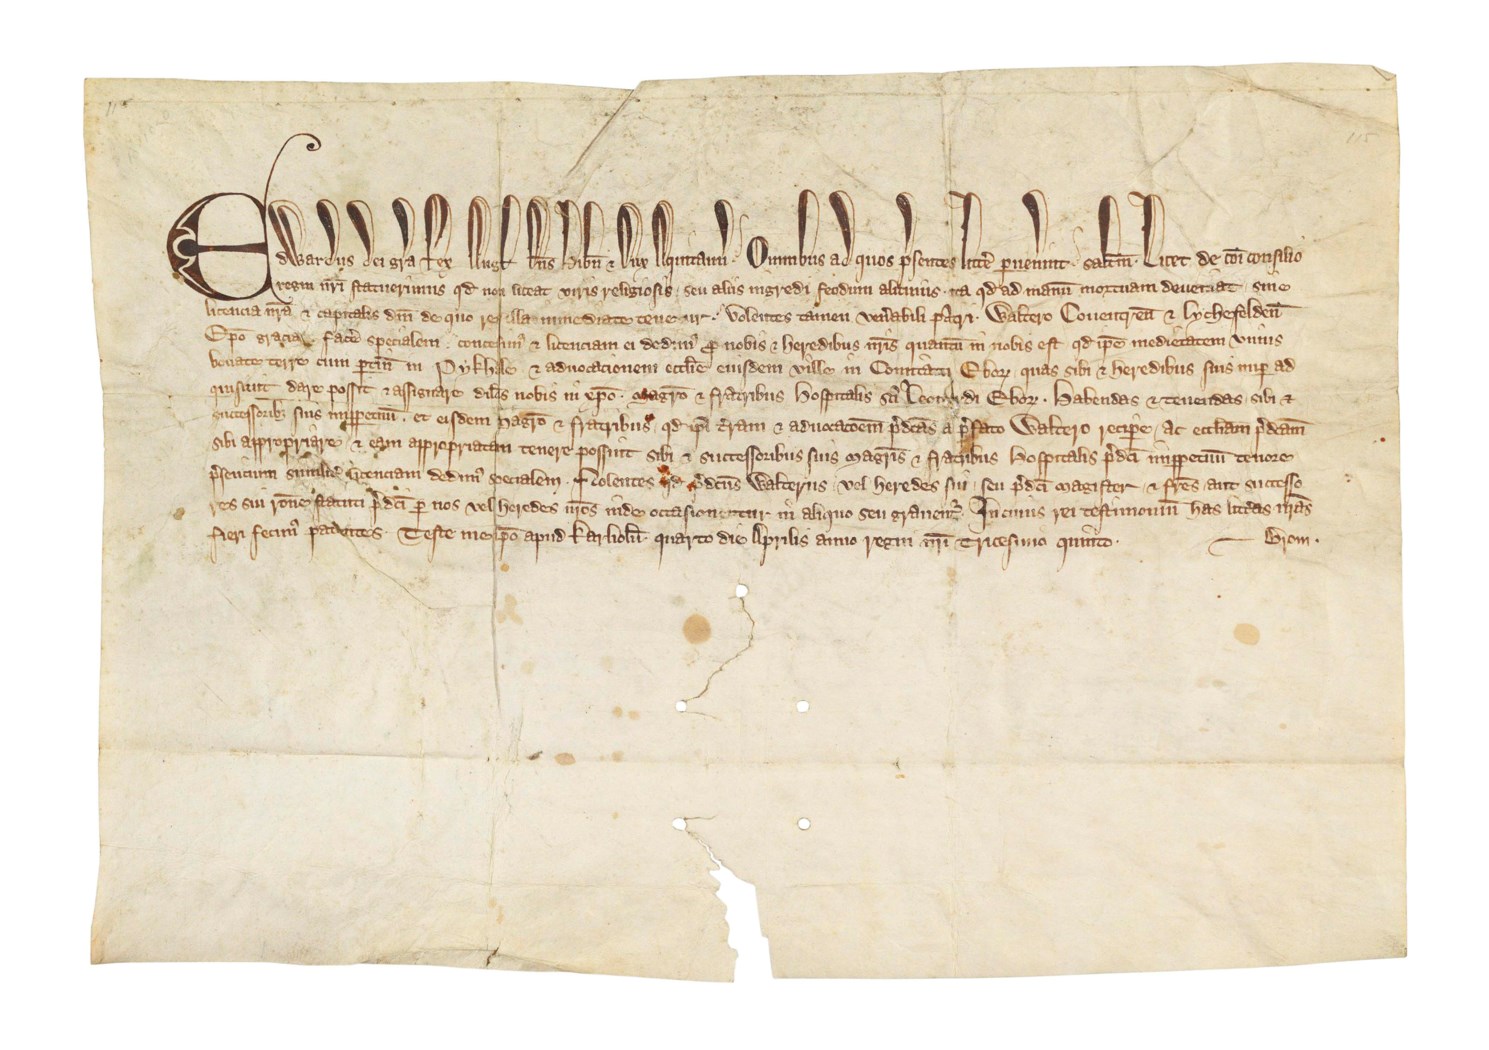 115
Edwardus dei gra Rex Angl Dns Hibn & Dux Aquitann. Omnibus ad quos psentes littere pervenint saltm. Licet de coi consilio
regni nri statuerimus qd non liceat viris religiosis, seu aliis ingredi feodum alicuius, ita qd ad manu mortuam deveniat sine
licencia nra & capitalis dni de quo res illa inmediate tenetur. Volentes tamen venabili pri. Waltero Coventren & Lychefelden
Epo graciam facere specialem, concessim & licenciam ei dedim p nobis & heredibus nris quantu in nobis est qd ipe medietatem unius
bovate terre cum ptin in Pykhale & advocacionem ecclie eiusdem ville in Comitatu Ebor, quas sibi & heredibus suis nup ad
quisiuit dare possit & assignare dilcis nobis in xpo. Magro & fratribus Hospitalis sci Leonardi Ebor. Habendas & tenendas sibi &
successoribz suis imppetuum. Et eisdem Magro & fratribus, qd ipi terram & advocacoem pdcas a pfato Waltero recipe, ac eccliam pdcam
sibi appropriare, & eam appropriatam tenere possint sibi & successoribus suis Magris & fratribus Hospitalis pdci imppetuum tenore
psencium similit licenciam dedim specialem. Nolentes qd pdcus Walterus, vel heredes sui, seu pdci Magister & fres aut successo
res sui rone statuti pdci p nos vel heredes nros inde occasionentur in aliquo seu gravent. In cuius rei testimoniu has litteras nras
fieri fecim patentes. Teste me ipo apud Karliolu quarto die Aprilis anno regni nri Tricesimo quinto.